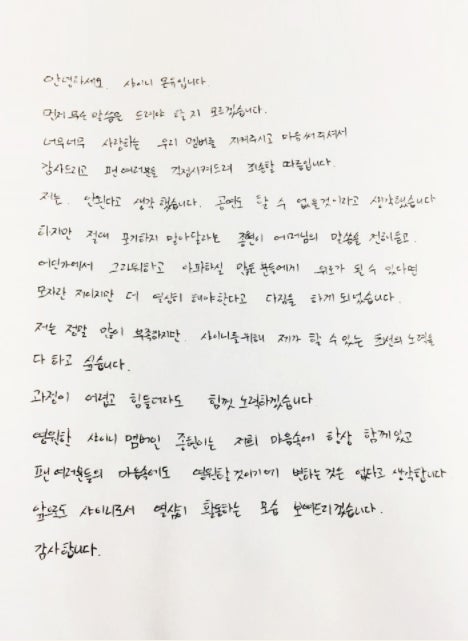 안녕하세요. 샤이니 온유입니다.
먼저 무슨 말씀을 드려야 할 지 모르겠습니다.
너무너무 사랑하는 우리 멤버를 지켜주시고 마음 써 주셔서
감사드리고 팬 여러분을 걱정시켜드려 죄송할 따름입니다.
저는. 안된다고 생각 했습니다. 공연도 할 수 없을것이라고 생각했습니다
하지만 절대 포기하지 말아달라는 종현이 어머님의 말씀을 전해듣고.
어딘가에서 그리워하고 아파하실 많은 분들에게 위로가 될 수 있다면
모자란 저이지만 더 열심히 해야한다고 다짐을 하게 되었습니다.
저는 정말 많이 부족하지만. 샤이니를 위해 제가 할 수 있는 최선의 노력을
다 하고 싶습니다.
과정이 어렵고 힘들더라도 힘껏 노력하겠습니다
영원한 샤이니 멤버인 종현이는 저희 마음속에 항상 함께 있고
팬 여러분들의 마음속에도 영원할 것이기에 변하는 것은 없다고 생각합니다
앞으로도 샤이니로서 열심히 활동하는 모습 보여드리겠습니다.
감사합니다.